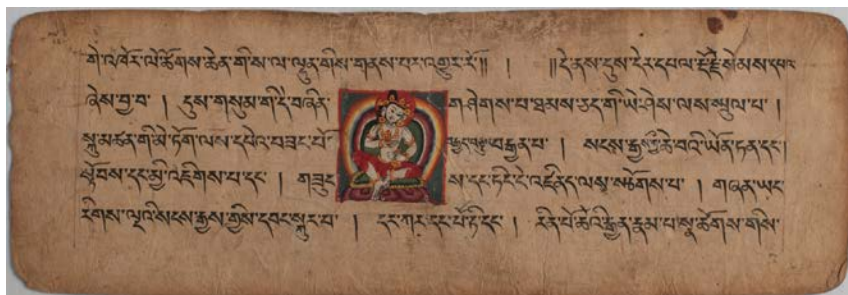 གེ་འཁོར་ལེ་ཚོགས་ཆེན་གིས་ལ་ལྷུན་གིས་གནས་པར་འགྱུར་རོ༎ ། ༎དེ་ནས་དུས་དེར་དཔལ་རྡོ་རྗེ་སེམས་དཔལ
ཞེས་བྱ་བ་ ། དུས་གསུམ་གི་དེ་བཞིན་ གཤེགས་པ་ཐམས་ཅད་གི་ཡེ་ཤེས་ལས་སྤྲུལ་པ་ །
སྐུ་མཚན་གི་མེ་ཏོག་ལས་དཔེའ་བཟང་པོ་ བརྒྱན་པ་ ། སངས་རྒྱ་ཆེ་བའི་ཡོན་ཏན་དང།
སྟོབས་དང་མྱི་འཇིགས་པ་དང་ ། གཟུང ས་དང་ཏིང་ངེ་འཛིནད་ལསྩ་སཚོགས་པ་ ། གཞན་ཡང
རིགས་ལྔའི་སངས་རྒྱས་གྱིས་དབང་སྐུར་པ་ ། དར་ཀར་དང་པོ་ཏི་དང་ ། རིན་པོ་ཆེའི་རྒྱན་རྣམ་པ་སྣ་ཚོགས་གསི་